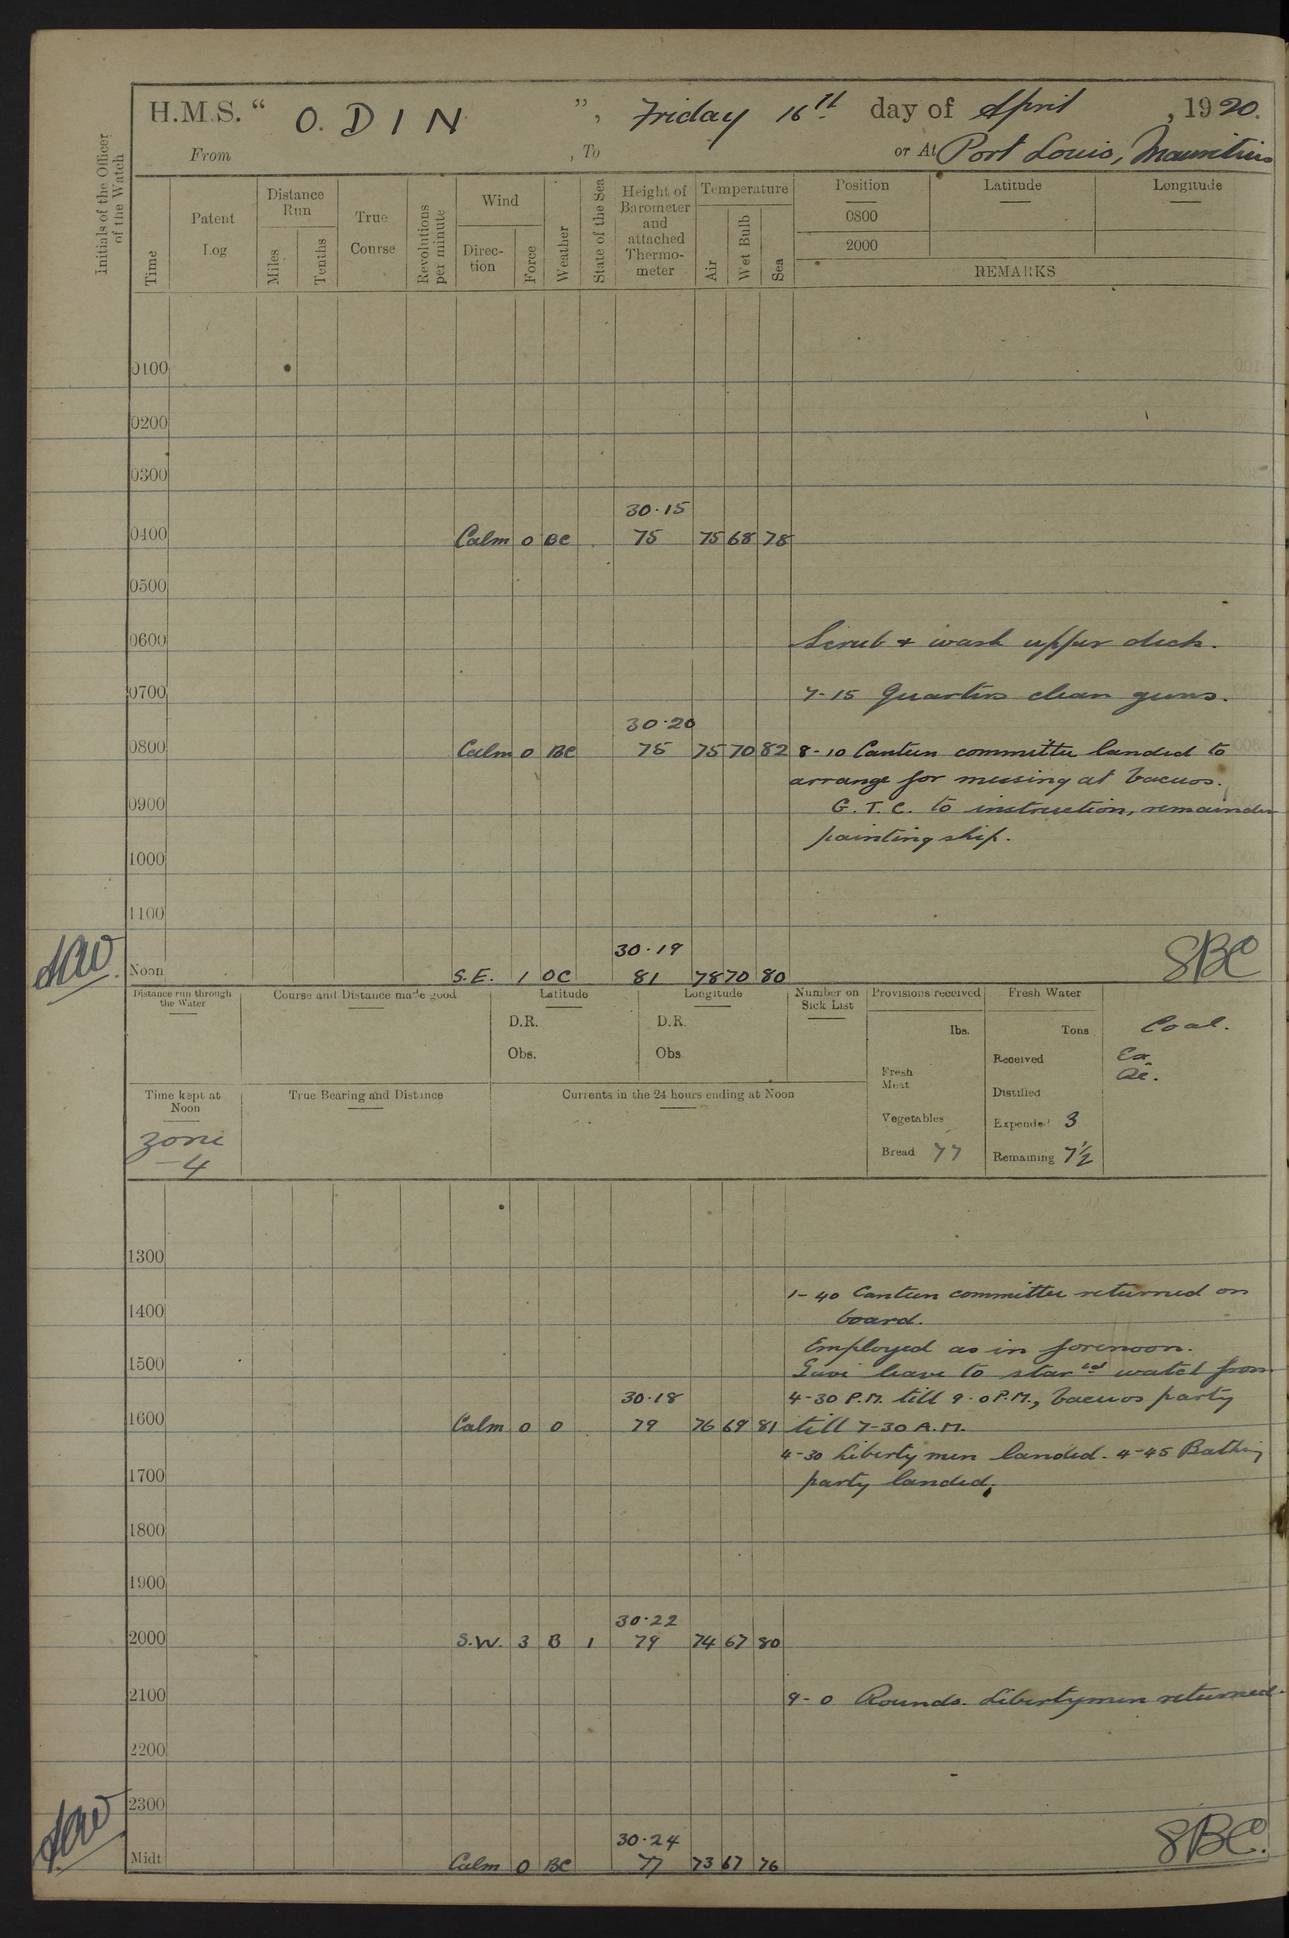 H.M.S. “ O. D I N ”, Friday 16th day of April, 1920.
From , To or At Port Louis, Mauritius
Initials of the Officer of the Watch
Time
Patent Log
Distance Run
Miles
Tenths
True Course
Revolutions per minute
Wind
Direc-tion
Force
Weather
State of the Sea
Height of Barometer and attached Thermo-meter
Temperature
Air
Wet Bulb
Sea
Position Latitude Longitude
0800
2000
REMARKS
0100
0200
0300
30·15
0400 Calm 0 BC 75 75 68 78
0500
0600 Scrub + wash upper deck.
0700 7-15 Quarters clean guns.
30·20
0800 Calm 0 BC 75 75 70 82 8-10 Canteen committee landed to
arrange for messing at Vacuos.
0900 G.T.C. to instruction, remainder
painting ship.
1000
1100
30·19
Noon S.E. 1 OC 81 78 70 80 SBC
Distance run through the Water
Course and Distance made good
Latitude
D.R.
Obs.
Longitude
D.R.
Obs
Number on Sick List
Provisions received
lbs.
Fresh Meat
Vegetables
Bread 77
Fresh Water
Tons
Received
Distilled
Expended 3
Remaining 7½
Coal.
Ex.
Time kept at Noon
Zone
-4
True Bearing and Distance
Currents in the 24 hours ending at Noon
1300
1-40 Canteen committee returned on
1400 board.
Employed as in forenoon.
1500 Gave leave to starbd watch from
30·18 4-30 P.M. till 9-0 P.M., Vacuos party
1600 Calm 0 0 79 76 69 81 till 7-30 A.M.
4-30 Liberty men landed. 4-45 Bathing
1700 party landed.
1800
1900
30·22
2000 S.W. 3 B 1 79 74 67 80
2100 9-0 Rounds. Libertymen returned.
2200
2300
30·24
Midt Calm 0 BC 77 73 67 76 SBC.